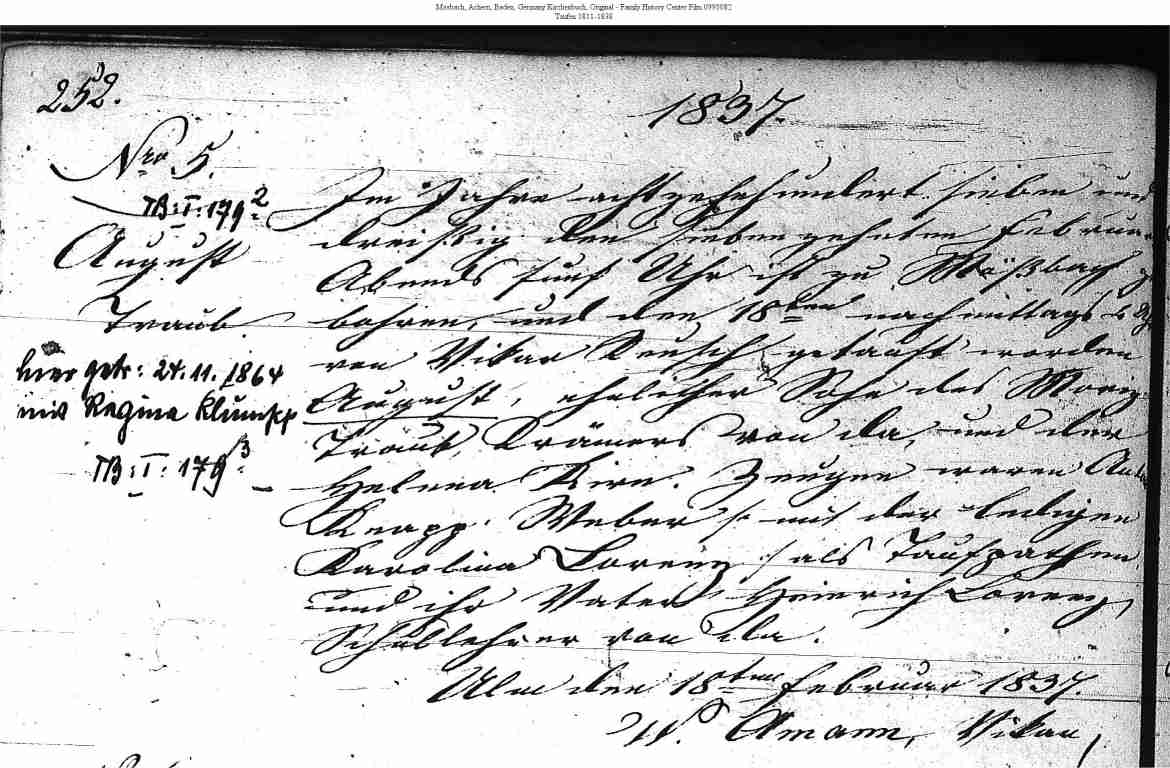 Mosbach, Achern, Baden, Germany Kirchenbuch, Original - Family History Center Film 0993082
Taufen 1811-1838
252.
1837.
Nro 5.
TB: I: 179 2
August
Traub
hier getr: 24. 11. 1864
mit Regina Klumpp
TB: I: 179 3
Im Jahre achtzehnhundert sieben und
dreißig den siebenzehnten Februar
Abends fünf Uhr ist zu Mößbach
bohren, und den 18ten nachmittags
von Vikar getauft worden
August, ehelicher Sohn des
Traub, Krämers von da, und der
Helena Kirn. Zeugen waren
Knapp Weber mit der ledigen
Karolina Lorenz als Taufpathen
und ihr Vater Heinrich Lorenz
Schullehrer von da.
Ulm den 18ten Februar 1837.
W. Amann, Vikar